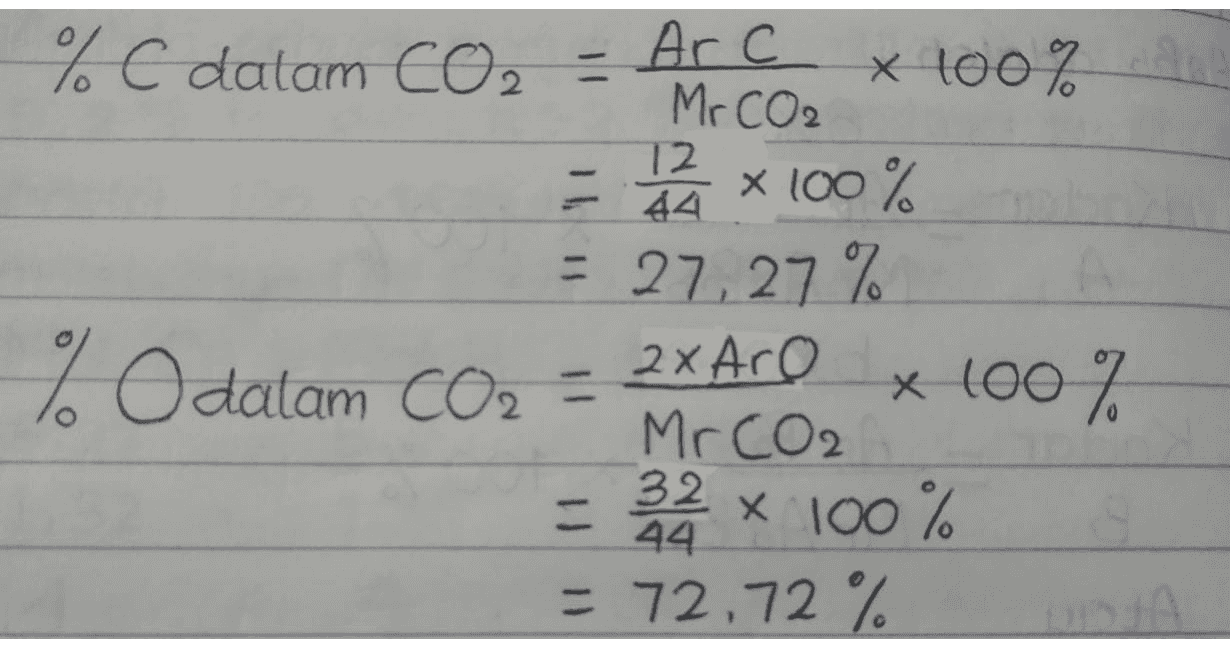 % C dalam CO₂ = Ar C / Mr CO₂ × 100%
= 12/44 × 100%
= 27,27%
% O dalam CO₂ = 2 × Ar O / Mr CO₂ × 100%
= 32/44 × 100%
= 72,72%